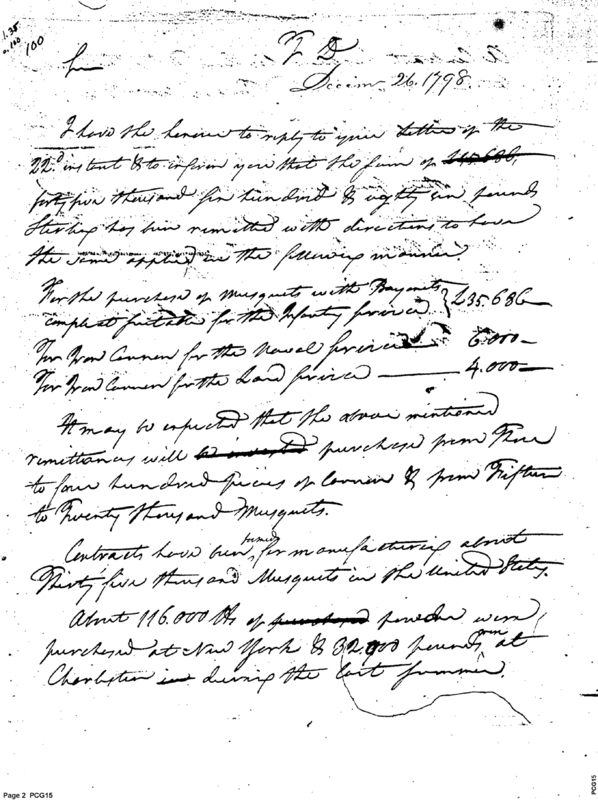 1.35
100
T D
Sir
Decem 26. 1798.
I have the honour to reply to your Letter of the
22d instant & to inform you that the sum of £45.686,
forty five thousand six hundred & eighty six pounds
Sterling has been remitted with directions to have
the same applied in the following manner.
For the purchase of Musquets with Bayonets
compleat suitable for the Infantry service } £35.686—
For Iron Cannon for the Naval service 6.000—
For Iron Cannon for the Land service —— 4.000—
It may be expected that the above mentioned
remittances will be invested purchase from Three
to four hundred pieces of Cannon & from Fifteen
to Twenty thousand Musquets.
Contracts have been formed for manufacturing about
Thirty five thousand Musquets in the United States.
About 116.000 lbs of purchased powder were
purchased at New York & 32.000 pounds at
Charleston in during the last summer.
Page 2 PCG15
PCG15